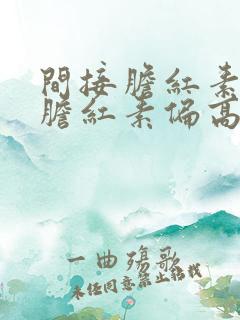 間接膽紅素
膽紅素偏高
一曲殤歌
未経同意禁止轉載